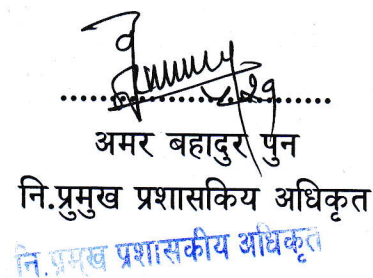 अमर बहादुर पुन
नि.प्रुमुख प्रशासकिय अधिकृत
नि.प्रमुख प्रशासकीय अधिकृत